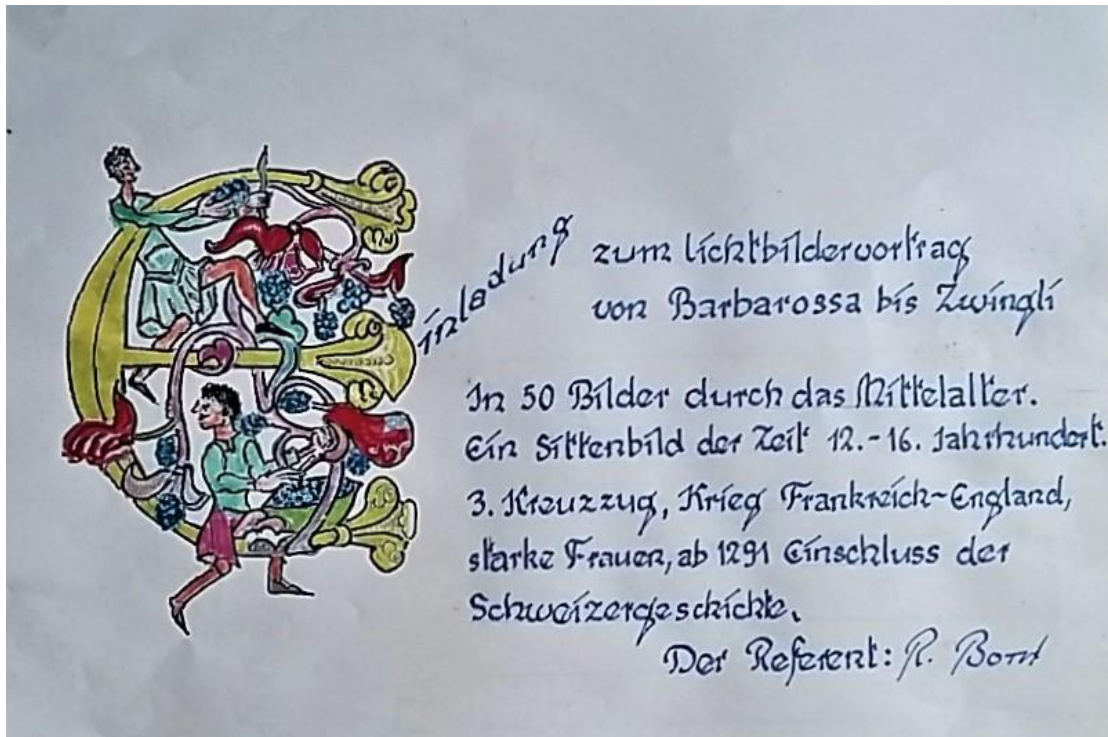 Einladung zum Lichtbildervortrag
von Barbarossa bis Zwingli
In 50 Bilder durch das Mittelalter.
Ein Sittenbild der Zeit 12.-16. Jahrhundert.
3. Kreuzzug, Krieg Frankreich-England,
starke Frauen, ab 1291 Einschluss der
Schweizergeschichte.
Der Referent: R.